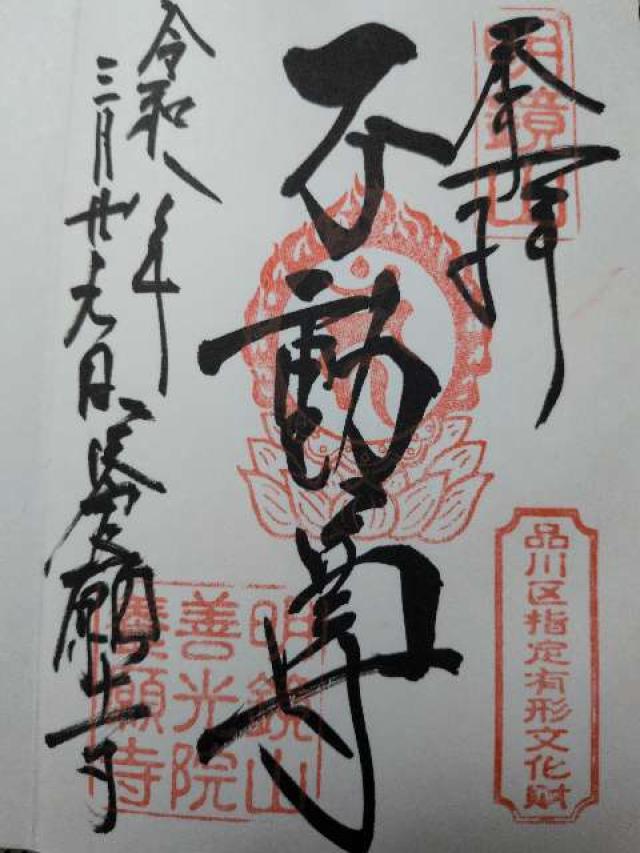 奉拝
明鏡山
不動尊
品川区指定有形文化財
令和八年
三月廿 日
養願寺
明鏡山
善光院
養願寺